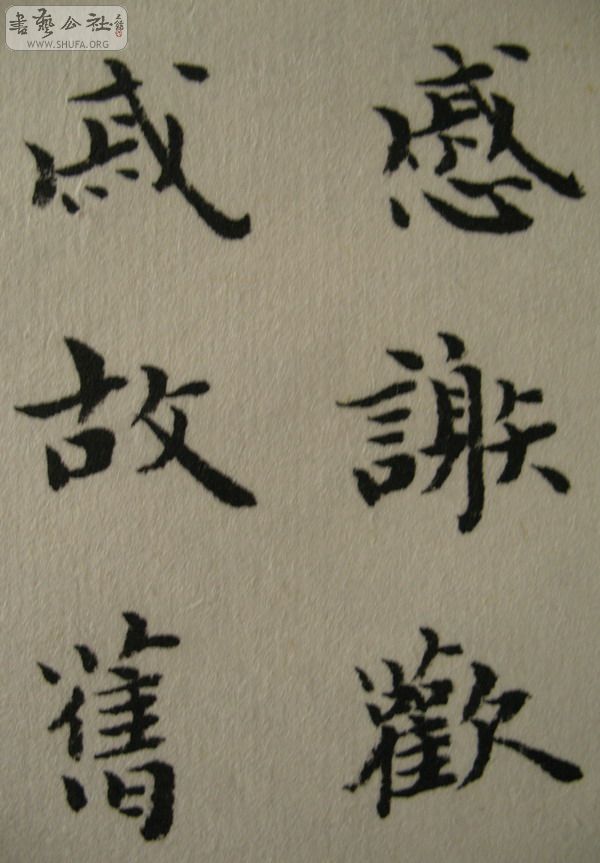 書藝公社
WWW.SHUFA.ORG
慼謝歡
戚故舊